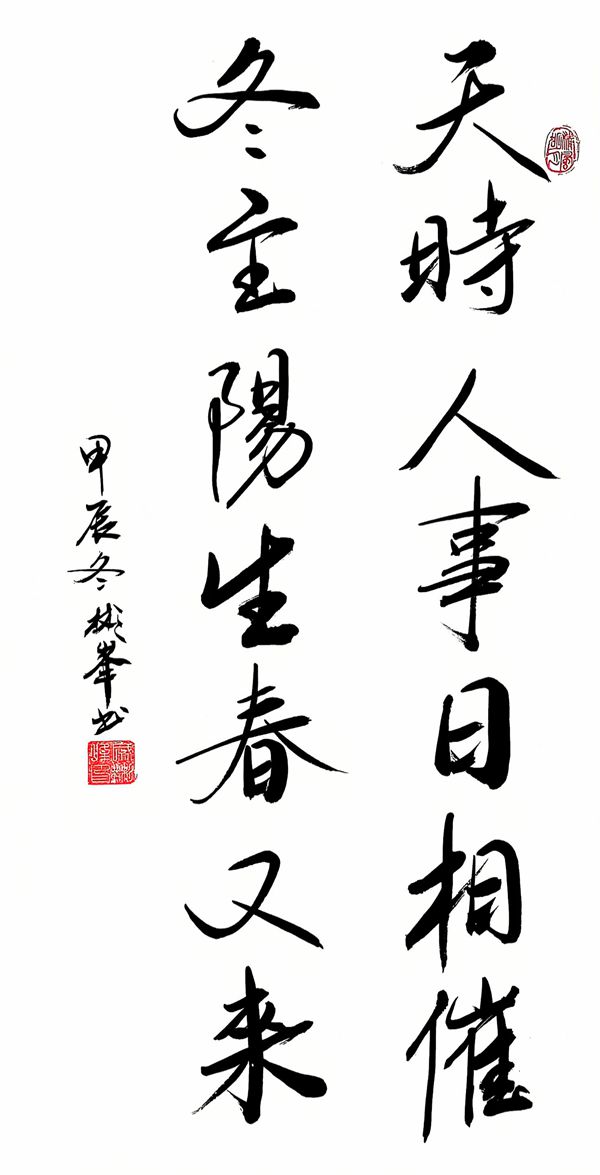 天時人事日相催
冬至陽生春又來
甲辰冬彬峯书